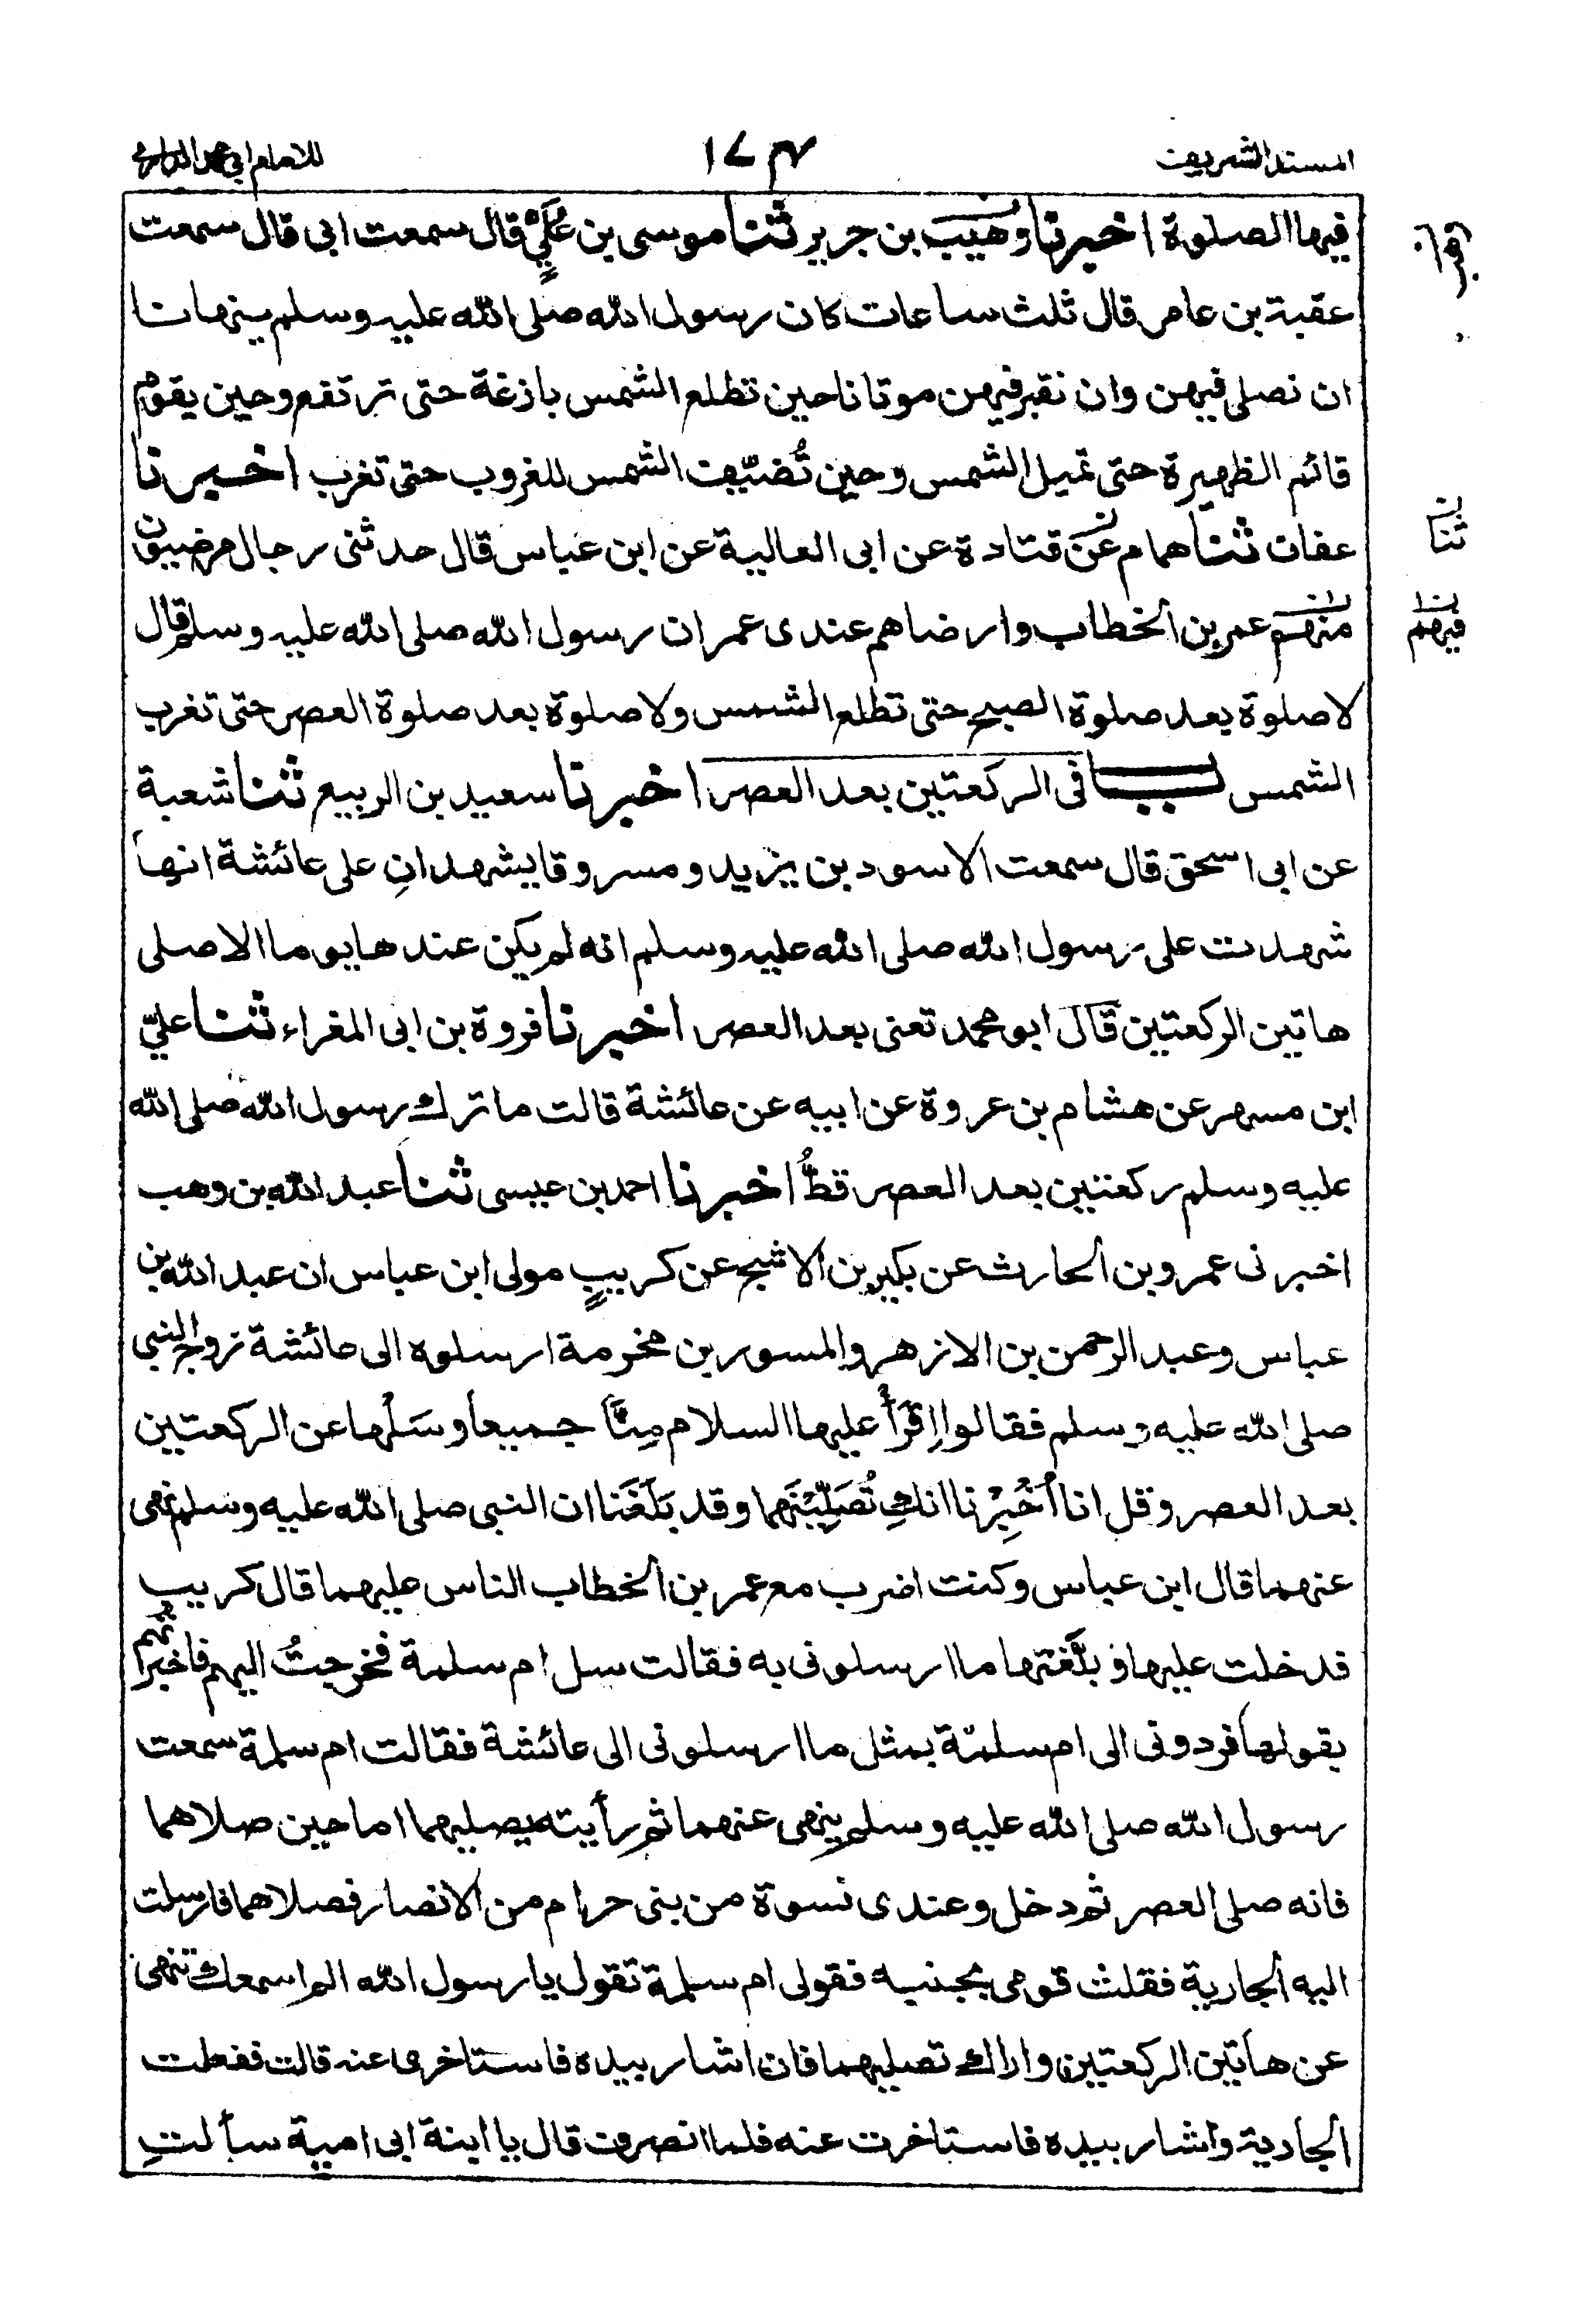 المسند الشريف
١٧٤
للامام ابي محمد الدارمي
فيها الصلوة اخبرنا وهيب بن جرير ثنا موسى بن عُلَيٍّ قال سمعت ابى قال سمعت
عقبة بن عامر قال ثلث ساعات كان رسول الله صلى الله عليه وسلم ينهانا
ان نصلى فيهن وان نقبر فيهن موتانا حين تطلع الشمس بازغة حتى ترتفع وحين يقوم
قائم الظهيرة حتى تميل الشمس وحين تُضيّف الشمس للغروب حتى تغرب اخبرنا
عفان ثنا همام عن قتادة عن ابى العالية عن ابن عباس قال حدثنى رجال مرضيون
منهم عمر بن الخطاب وارضاهم عندى عمر ان رسول الله صلى الله عليه وسلم قال
لا صلوة بعد صلوة الصبح حتى تطلع الشمس ولا صلوة بعد صلوة العصر حتى تغرب
الشمس باب فى الركعتين بعد العصر اخبرنا سعيد بن الربيع ثنا شعبة
عن ابى اسحق قال سمعت الاسود بن يزيد ومسروقا يشهدانِ على عائشة انها
شهدت على رسول الله صلى الله عليه وسلم انه لم يكن عندها يوما الا صلى
هاتين الركعتين قال ابو محمد تعنى بعد العصر اخبرنا فروة بن ابى المغراء ثنا علىّ
ابن مسهر عن هشام بن عروة عن ابيه عن عائشة قالت ما ترك رسول الله صلى الله
عليه وسلم ركعتين بعد العصر قطُّ اخبرنا احمد بن عيسى ثنا عبد الله بن وهب
اخبرنى عمرو بن الحارث عن بكير بن الاشج عن كريبٍ مولى ابن عباس ان عبد الله بن
عباس وعبد الرحمن بن الازهر والمسور بن مخرمة ارسلوه الى عائشة زوج النبى
صلى الله عليه وسلم فقالوا اِقْرَأْ عليها السلام مِنَّا جميعا وسَلْها عن الركعتين
بعد العصر وقل انا اُخْبِرْنا انكِ تُصَلِّيْنَهما وقد بَلَغَنا ان النبى صلى الله عليه وسلم نهى
عنهما قال ابن عباس وكنت اضرب مع عمر بن الخطاب الناس عليهما قال كريب
فدخلت عليها وبلَّغتها ما ارسلونى به فقالت سل ام سلمة فخرجتُ اليهم فاخبرتهم
بقولها فردونى الى ام سلمة بمثل ما ارسلونى الى عائشة فقالت ام سلمة سمعت
رسول الله صلى الله عليه وسلم ينهى عنهما ثم رأيته يصليهما اما حين صلاهما
فانه صلى العصر ثم دخل وعندى نسوة من بنى حرام من الانصار فصلاهما فارسلت
اليه الجارية فقلت قومى بجنبه فقولى ام سلمة تقول يا رسول الله الم اسمعك تنهى
عن هاتين الركعتين واراك تصليهما فان اشار بيده فاستاخرى عنه قالت ففعلت
الجارية واشار بيده فاستاخرت عنه فلما انصرف قال يا ابنة ابى امية سألتِ
ن
ثنا
فيهم